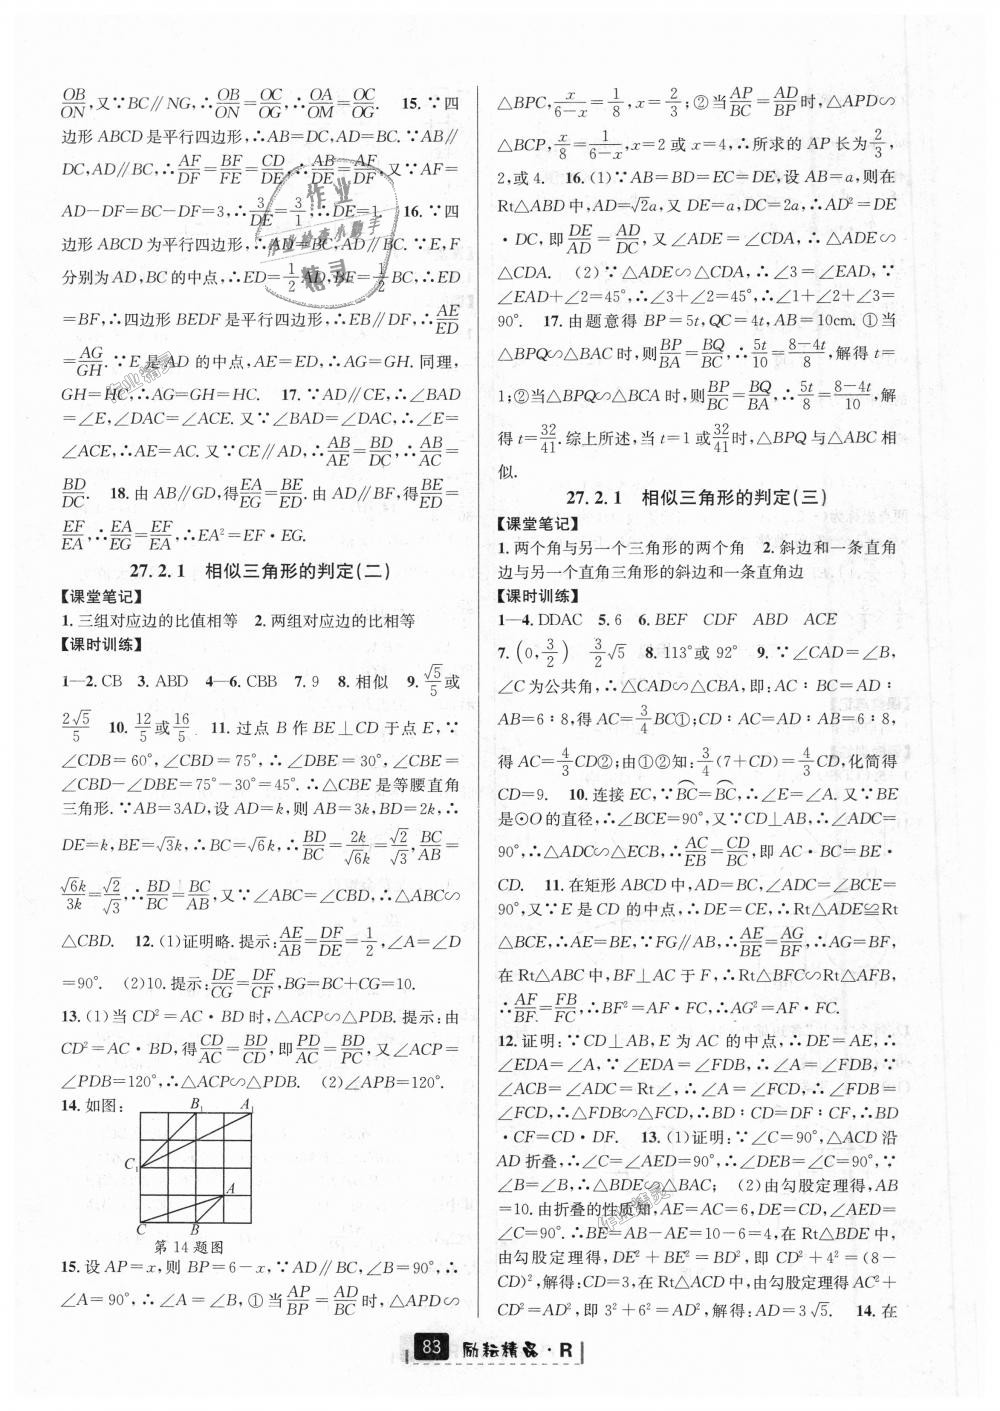 OB/ON,又∵BC∥NG,∴OB/ON=OC/OG,∴OA/OM=OC/OG. 15.∵四
边形ABCD是平行四边形,∴AB=DC,AD=BC.∵AB∥
DC,AD∥BC,∴AF/DF=BF/FE=CD/DE,∴AB/DE=AF/DF.又∵AF=
AD-DF=BC-DF=3,∴3/DE=3/1,∴DE=1. 16.∵四
边形ABCD为平行四边形,∴AD∥BC,AD=BC.∵E,F
分别为AD,BC的中点,∴ED=1/2AD,BF=1/2BC,∴ED
=BF,∴四边形BEDF是平行四边形,∴EB∥DF,∴AE/ED
=AG/GH.∵E是AD的中点,AE=ED,∴AG=GH.同理,
GH=HC,∴AG=GH=HC. 17.∵AD∥CE,∴∠BAD
=∠E,∠DAC=∠ACE.又∵∠BAD=∠DAC,∴∠E=
∠ACE,∴AE=AC.又∵CE∥AD,∴AB/AE=BD/DC,∴AB/AC=
BD/DC. 18.由AB∥GD,得EA/EG=BE/ED.由AD∥BF,得BE/ED=
EF/EA,∴EA/EG=EF/EA,∴EA²=EF·EG.
27.2.1 相似三角形的判定(二)
【课堂笔记】
1.三组对应边的比值相等 2.两组对应边的比相等
【课时训练】
1—2.CB 3.ABD 4—6.CBB 7.9 8.相似 9.√5/5或
2√5/5 10.12/5或16/5. 11.过点B作BE⊥CD于点E,∵
∠CDB=60°,∠CBD=75°,∴∠DBE=30°,∠CBE=
∠CBD-∠DBE=75°-30°=45°.∴△CBE是等腰直角
三角形.∵AB=3AD,设AD=k,则AB=3k,BD=2k,∴
DE=k,BE=√3k,∴BC=√6k,∴BD/BC=2k/√6k=√2/√3,BC/AB=
√6k/3k=√2/√3,∴BD/BC=BC/AB,又∵∠ABC=∠CBD,∴△ABC∽
△CBD. 12.(1)证明略.提示:AE/AB=DF/DE=1/2,∠A=∠D
=90°. (2)10.提示:DE/CG=DF/CF,BG=BC+CG=10.
13.(1)当CD²=AC·BD时,△ACP∽△PDB.提示:由
CD²=AC·BD,得CD/AC=BD/CD,即PD/AC=BD/PC,又∠ACP=
∠PDB=120°,∴△ACP∽△PDB. (2)∠APB=120°.
14.如图:
B₁ A₁
C₁
A
C B
第14题图
15.设AP=x,则BP=6-x,∵AD∥BC,∠B=90°,∴
∠A=90°,∴∠A=∠B,①当AP/BP=AD/BC时,△APD∽
△BPC,x/6-x=1/8,x=2/3;②当AP/BC=AD/BP时,△APD∽
△BCP,x/8=1/6-x,x=2或x=4,∴所求的AP长为2/3,
2,或4. 16.(1)∵AB=BD=EC=DE,设AB=a,则在
Rt△ABD中,AD=√2a,又DE=a,DC=2a,∴AD²=DE
·DC,即DE/AD=AD/DC,又∠ADE=∠CDA,∴△ADE∽
△CDA. (2)∵△ADE∽△CDA,∴∠3=∠EAD,∵
∠EAD+∠2=45°,∴∠3+∠2=45°,∴∠1+∠2+∠3=
90°. 17.由题意得BP=5t,QC=4t,AB=10cm.①当
△BPQ∽△BAC时,则BP/BA=BQ/BC,∴5t/10=8-4t/8,解得t=
1;②当△BPQ∽△BCA时,则BP/BC=BQ/BA,∴5t/8=8-4t/10,解
得t=32/41.综上所述,当t=1或32/41时,△BPQ与△ABC相
似.
27.2.1 相似三角形的判定(三)
【课堂笔记】
1.两个角与另一个三角形的两个角 2.斜边和一条直角
边与另一个直角三角形的斜边和一条直角边
【课时训练】
1—4.DDAC 5.6 6.BEF CDF ABD ACE
7.(0,3/2) 3/2√5 8.113°或92° 9.∵∠CAD=∠B,
∠C为公共角,∴△CAD∽△CBA,即:AC∶BC=AD∶
AB=6∶8,得AC=3/4BC①;CD∶AC=AD∶AB=6∶8,
得AC=4/3CD②;由①②知:3/4(7+CD)=4/3CD,化简得
CD=9. 10.连接EC,∵BC=BC,∴∠E=∠A.又∵BE
是⊙O的直径,∴∠BCE=90°,又∵CD⊥AB,∴∠ADC=
90°,∴△ADC∽△ECB,∴AC/EB=CD/BC,即AC·BC=BE·
CD. 11.在矩形ABCD中,AD=BC,∠ADC=∠BCE=
90°,又∵E是CD的中点,∴DE=CE,∴Rt△ADE≌Rt
△BCE,∴AE=BE,∵FG∥AB,∴AE/BE=AG/BF,∴AG=BF,
在Rt△ABC中,BF⊥AC于F,∴Rt△BFC∽Rt△AFB,
∴AF/BF=FB/FC,∴BF²=AF·FC,∴AG²=AF·FC.
12.证明:∵CD⊥AB,E为AC的中点,∴DE=AE,∴
∠EDA=∠A,∵∠EDA=∠FDB,∴∠A=∠FDB,∵
∠ACB=∠ADC=Rt∠,∴∠A=∠FCD,∴∠FDB=
∠FCD,∴△FDB∽△FCD,∴BD∶CD=DF∶CF,∴BD
·CF=CD·DF. 13.(1)证明:∵∠C=90°,△ACD沿
AD折叠,∴∠C=∠AED=90°,∴∠DEB=∠C=90°,∵
∠B=∠B,∴△BDE∽△BAC; (2)由勾股定理得,AB
=10.由折叠的性质知,AE=AC=6,DE=CD,∠AED=
∠C=90°.∴BE=AB-AE=10-6=4,在Rt△BDE中,
由勾股定理得,DE²+BE²=BD²,即CD²+4²=(8-
CD)²,解得:CD=3,在Rt△ACD中,由勾股定理得AC²+
CD²=AD²,即3²+6²=AD²,解得:AD=3√5. 14.在
83 励耘精品·R
作业
作业检查小助手
精灵
作业精灵
作业精灵